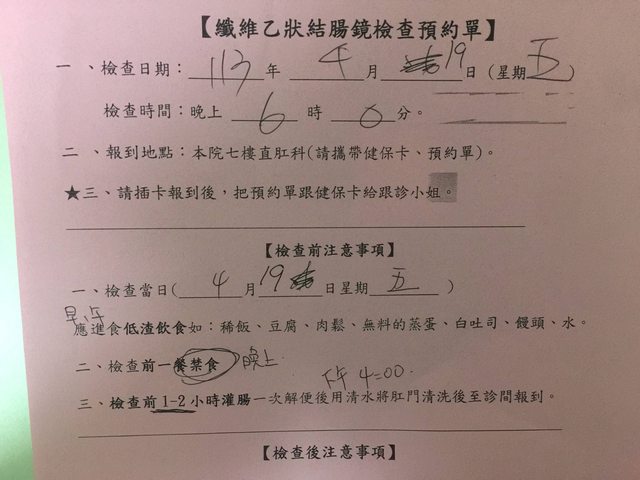 【纖維乙狀結腸鏡檢查預約單】
一、檢查日期：113年 4月 19日（星期五）
檢查時間：晚上 6 時 0 分。
二、報到地點：本院七樓直肛科(請攜帶健保卡、預約單)。
★三、請插卡報到後，把預約單跟健保卡給跟診小姐。
【檢查前注意事項】
一、檢查當日( 4月19日星期 五 )
早、午
應進食低渣飲食如：稀飯、豆腐、肉鬆、無料的蒸蛋、白吐司、饅頭、水。
二、檢查前一餐禁食 晚上.
下午 4:00.
三、檢查前 1-2 小時灌腸一次解便後用清水將肛門清洗後至診間報到。
【檢查後注意事項】